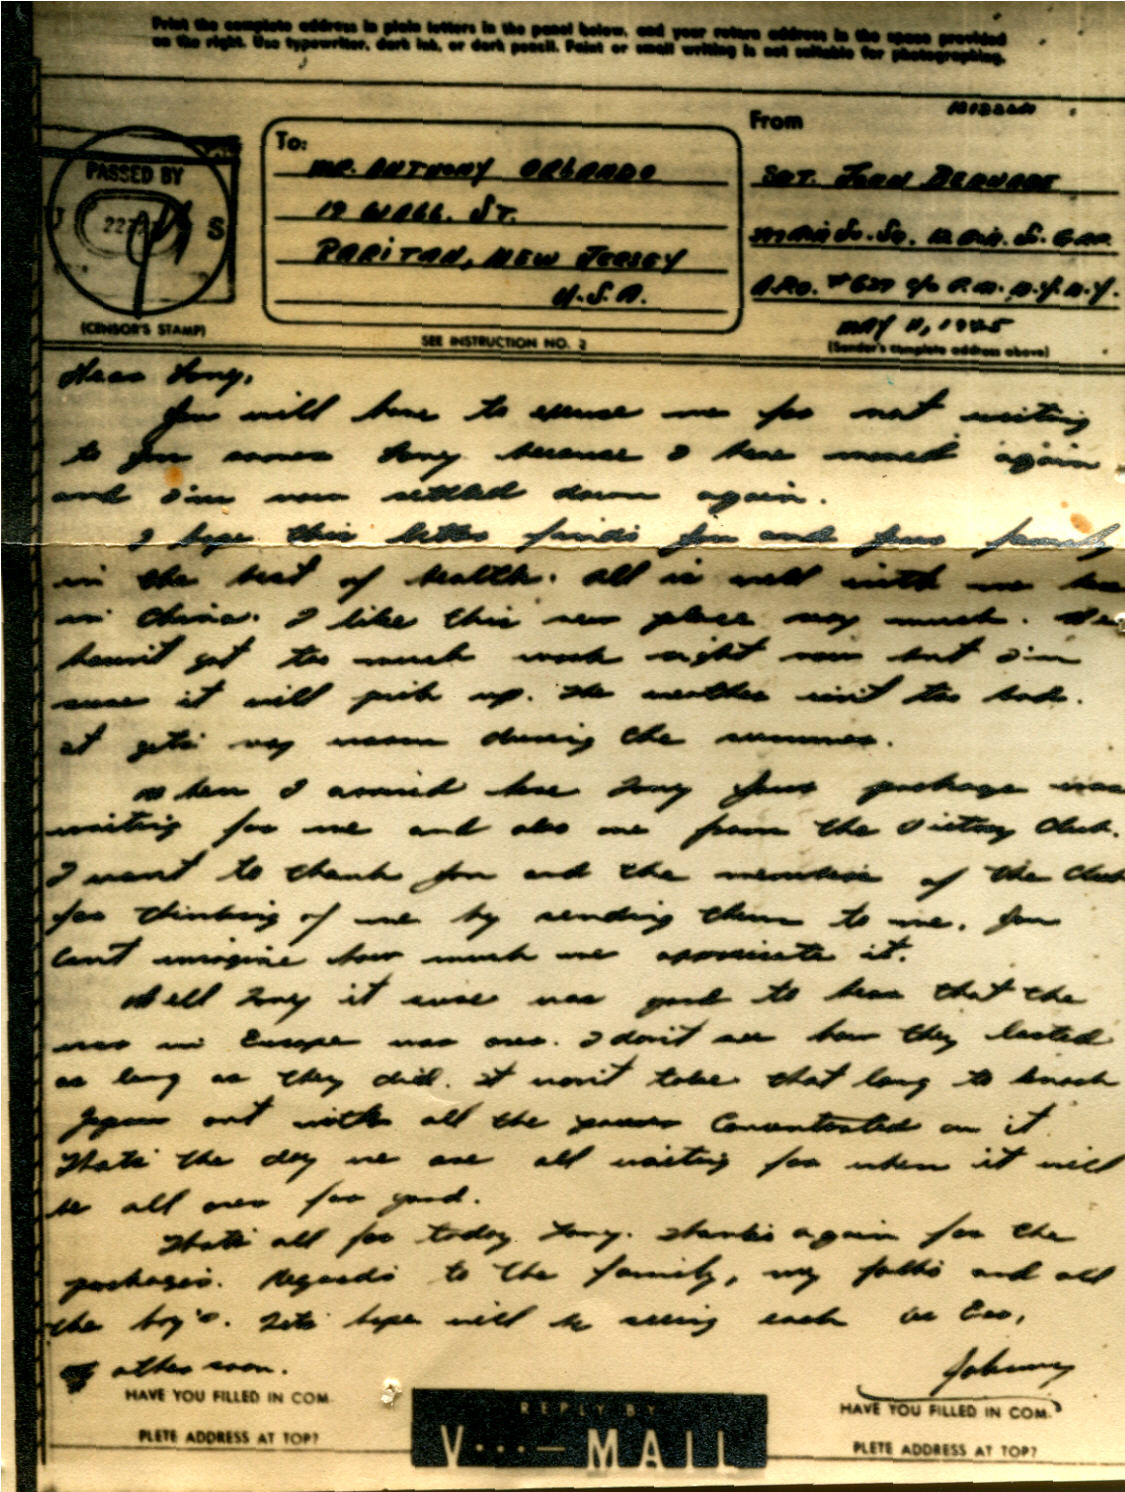 Print the complete address in plain letters in the panel below, and your return address in the space provided
on the right. Use typewriter, dark ink, or dark pencil. Faint or small writing is not suitable for photographing.
From
To:
PASSED BY
U S
(CENSOR'S STAMP)
MR. ANTHONY ORLANDO
19 WALL. ST.
RARITAN, NEW JERSEY
U.S.A.
SEE INSTRUCTION NO. 2
SGT. JOHN
A.P.O. #627 c/o P.M. N.Y. N.Y.
MAY 11, 1945
(Sender's complete address above)
Dear Tony,
You will have to excuse me for not writing
to you sooner Tony because I have moved again
and I'm now settled down again.
I hope this letter finds you and your family
in the best of health. All is well with me here
in China. I like this new place very much. We
haven't got too much work right now but I'm
sure it will pick up. The weather isn't too bad.
It gets very warm during the summer.
When I arrived here Tony your package was
waiting for me and also one from the Victory Club.
I want to thank you and the members of the Club
for thinking of me by sending them to me. You
can't imagine how much we appreciate it.
Well Tony it sure was good to hear that the
war in Europe was over. I don't see how they lasted
as long as they did. It won't take that long to knock
Japan out with all the power concentrated on it.
That's the day we are all waiting for when it will
be all over for good.
That's all for today Tony. Thanks again for the
packages. Regards to the family, my folks and all
the boy's. Lets hope will be seeing each
other soon.
As Ever,
Johnny
HAVE YOU FILLED IN COM-
PLETE ADDRESS AT TOP?
REPLY BY
V···— MAIL
HAVE YOU FILLED IN COM-
PLETE ADDRESS AT TOP?